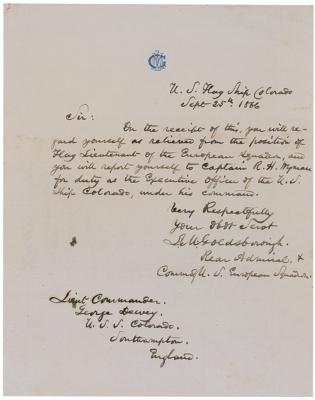 U. S. Flag Ship Colorado
Sept 25th 1866
Sir:
On the receipt of this, you will re-
gard yourself as relieved from the position of
Flag Lieutenant of the European Squadron, and
you will report yourself to Captain R. H. Wyman
for duty as the Executive Officer of the U. S.
Ship Colorado, under his command.
Very Respectfully
Your Obdt Servt
L. M. Goldsborough.
Rear Admiral, &
Commg U. S. European Squadron.
Lieut Commander.
George Dewey,
U. S. S. Colorado.
Southampton,
England.